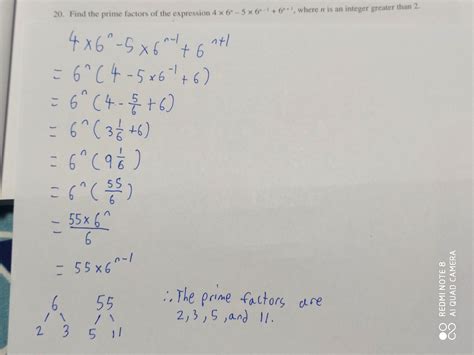 20. Find the prime factors of the expression 4 × 6ⁿ – 5 × 6ⁿ⁻¹ + 6ⁿ⁺¹, where n is an integer greater than 2.
4 × 6ⁿ – 5 × 6ⁿ⁻¹ + 6ⁿ⁺¹
= 6ⁿ (4 – 5 × 6⁻¹ + 6)
= 6ⁿ (4 – 5/6 + 6)
= 6ⁿ (3 1/6 + 6)
= 6ⁿ (9 1/6)
= 6ⁿ (55/6)
= 55 × 6ⁿ / 6
= 55 × 6ⁿ⁻¹
6 55
2 3 5 11
∴ The prime factors are
2, 3, 5, and 11.
REDMI NOTE 8
AI QUAD CAMERA